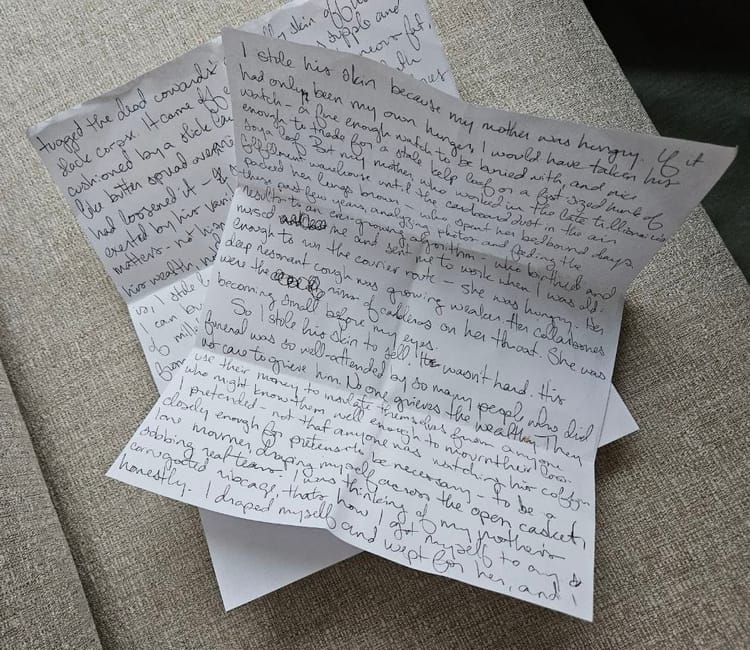 lly skin of his
supple and
neous fat,
tugged the dead coward's
slack corpse. It came off
cushioned by a slick la
like butter spread over
had loosened it –
exerted by his
matters – not
his wealth
So, I stole
I can b
do mill
from
I stole his skin because my mother was hungry. If it
had only been my own hunger, I would have taken his
watch – a fine enough watch to be buried with, and nice
enough to trade for a stale kelp loaf or a fist-sized hunk of
soya loaf. But my mother, who worked in the late trillionaire's
fulfillment warehouse until the cardboard dust in the air
packed her lungs brown – who spent her bedbound days
these past few years analyzing photos and feeding the
results to an ever-growing algorithm – who birthed and
nursed me and sent me to work when I was old
enough to run the courier route – she was hungry. Her
deep resonant cough was growing weaker. Her collarbones
were the rims of calderas on her throat. She was
becoming small before my eyes.
So I stole his skin to sell. It wasn't hard. His
funeral was so well-attended by so many people who did
not care to grieve him. No one grieves the wealthy. They
use their money to insulate themselves from anyone
who might know them well enough to mourn their loss.
I pretended – not that anyone was watching his coffin
closely enough for pretense to be necessary – to be a
lone mourner, draping myself across the open casket,
sobbing real tears. I was thinking of my mother's
corrugated ribcage, that's how I got myself to cry
honestly. I draped myself and wept for her, and I